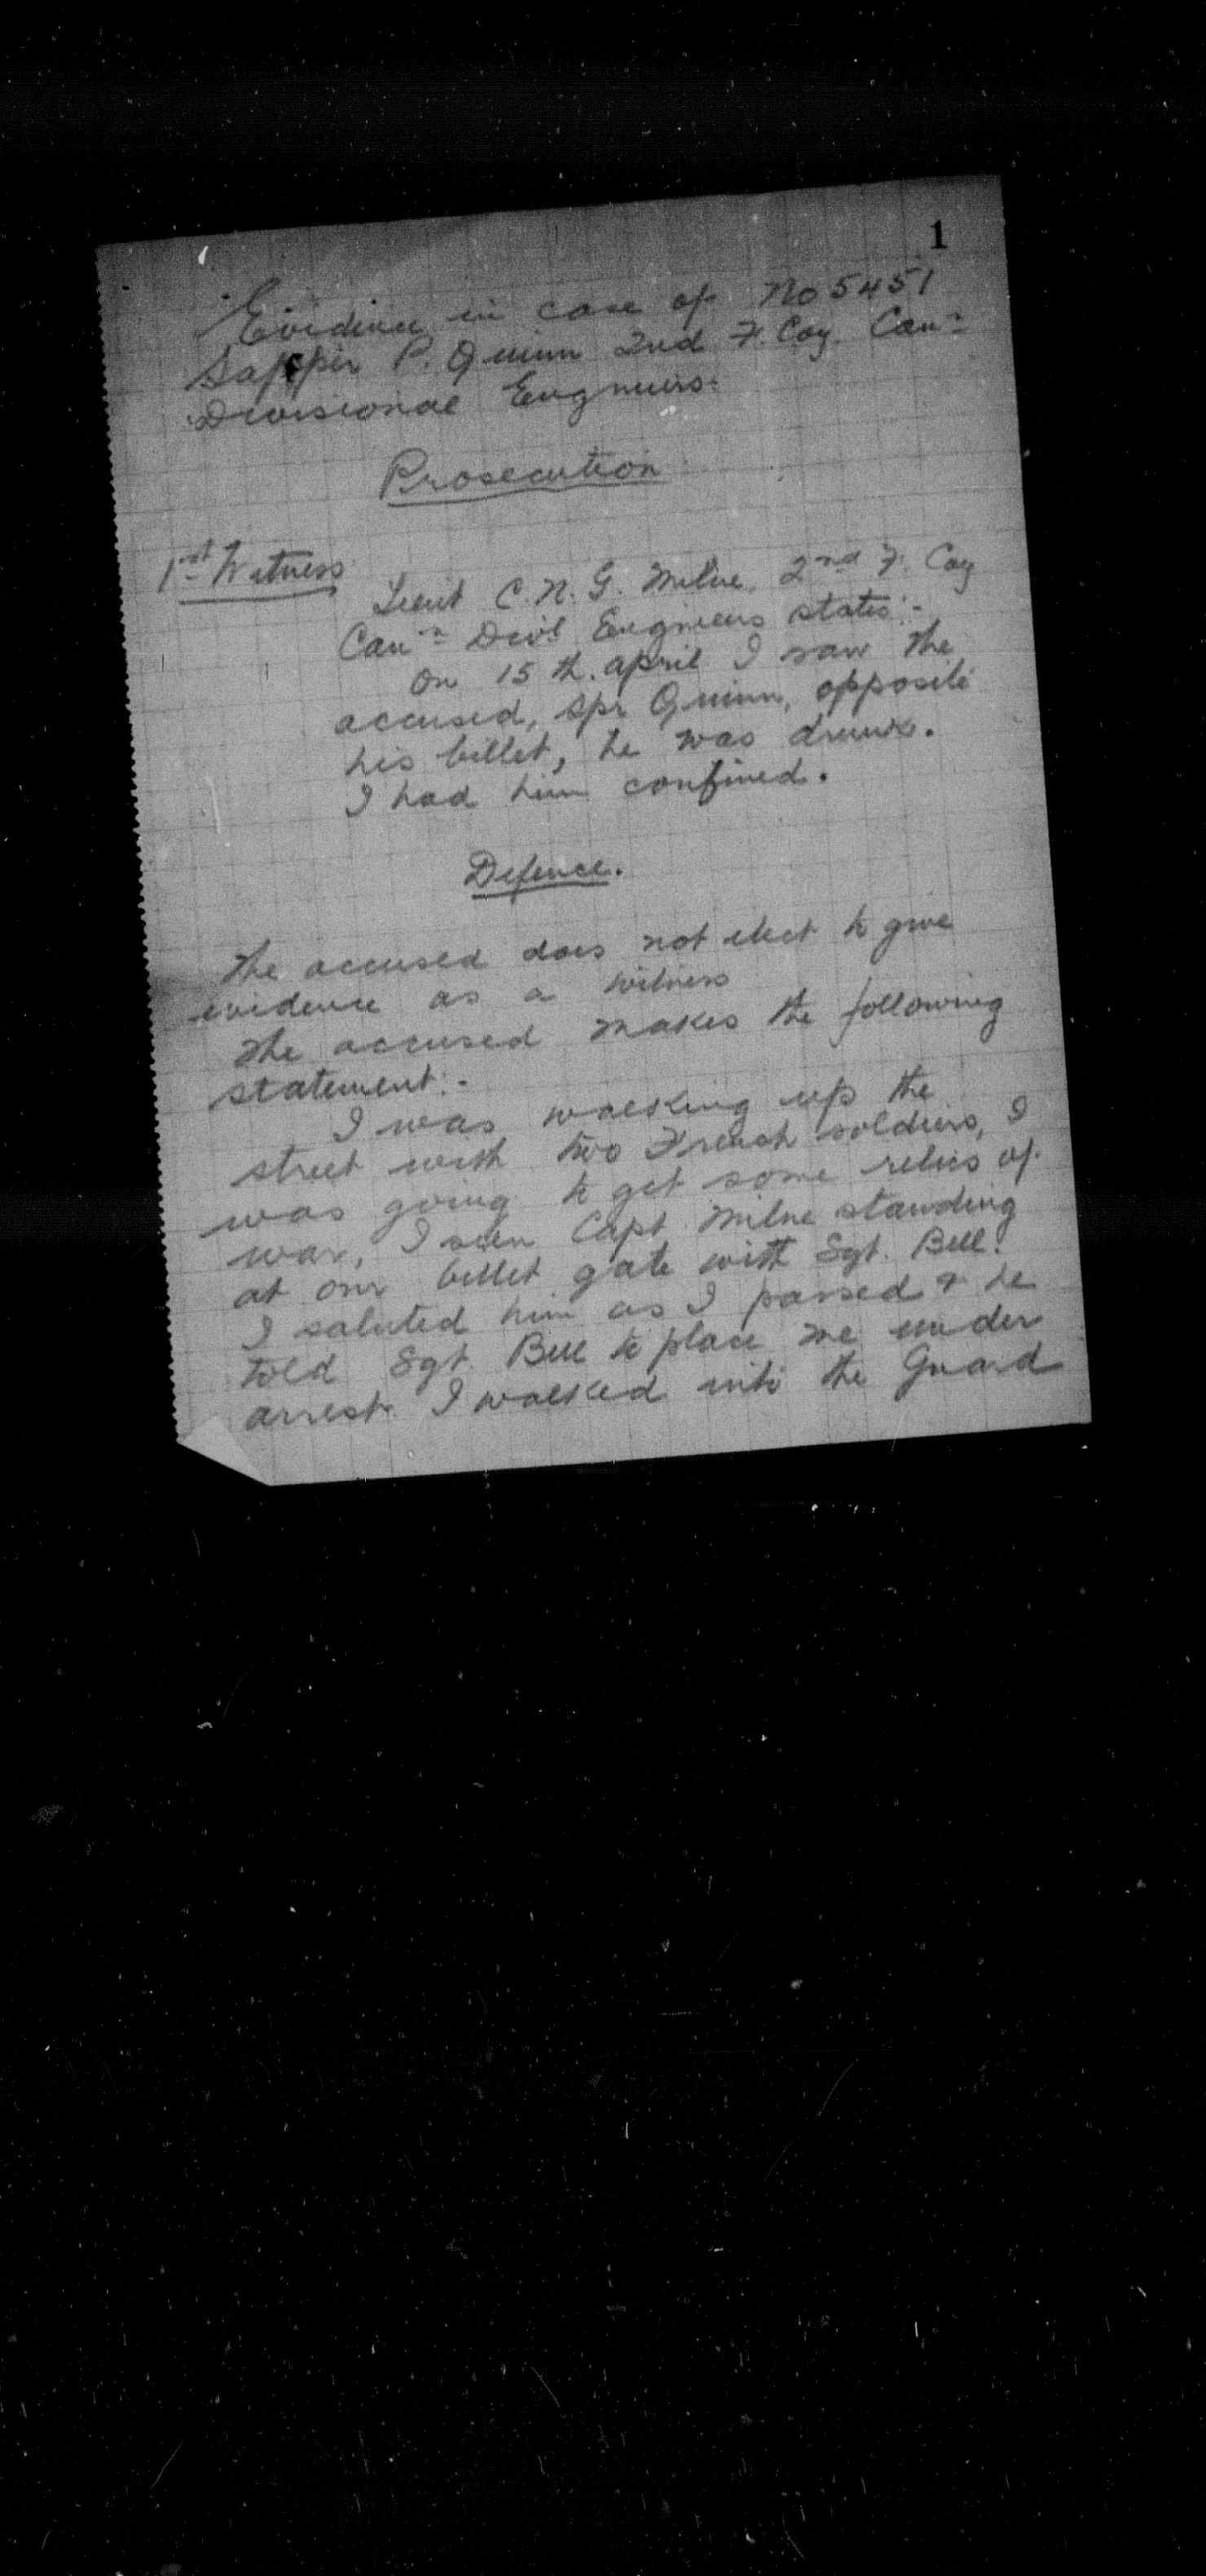 1
Evidence in case of No 5451
Sapper P. Quinn 2nd F. Coy. Can:n
Divisional Engineers.
Prosecution
1st Witness
Lieut C. N. G. Milne, 2nd F. Coy
Can:n Divl Engineers states:-
On 15 th. april I saw the
accused, Spr Quinn, opposite
his billet, he was drunk.
I had him confined.
Defence.
The accused does not elect to give
evidence as a witness
The accused makes the following
statement:-
I was walking up the
street with two French soldiers, I
was going to get some relics of
war, I seen Capt Milne standing
at our billet gate with Sgt. Bell.
I saluted him as I passed & he
told Sgt. Bell to place me under
arrest. I walked into the Guard